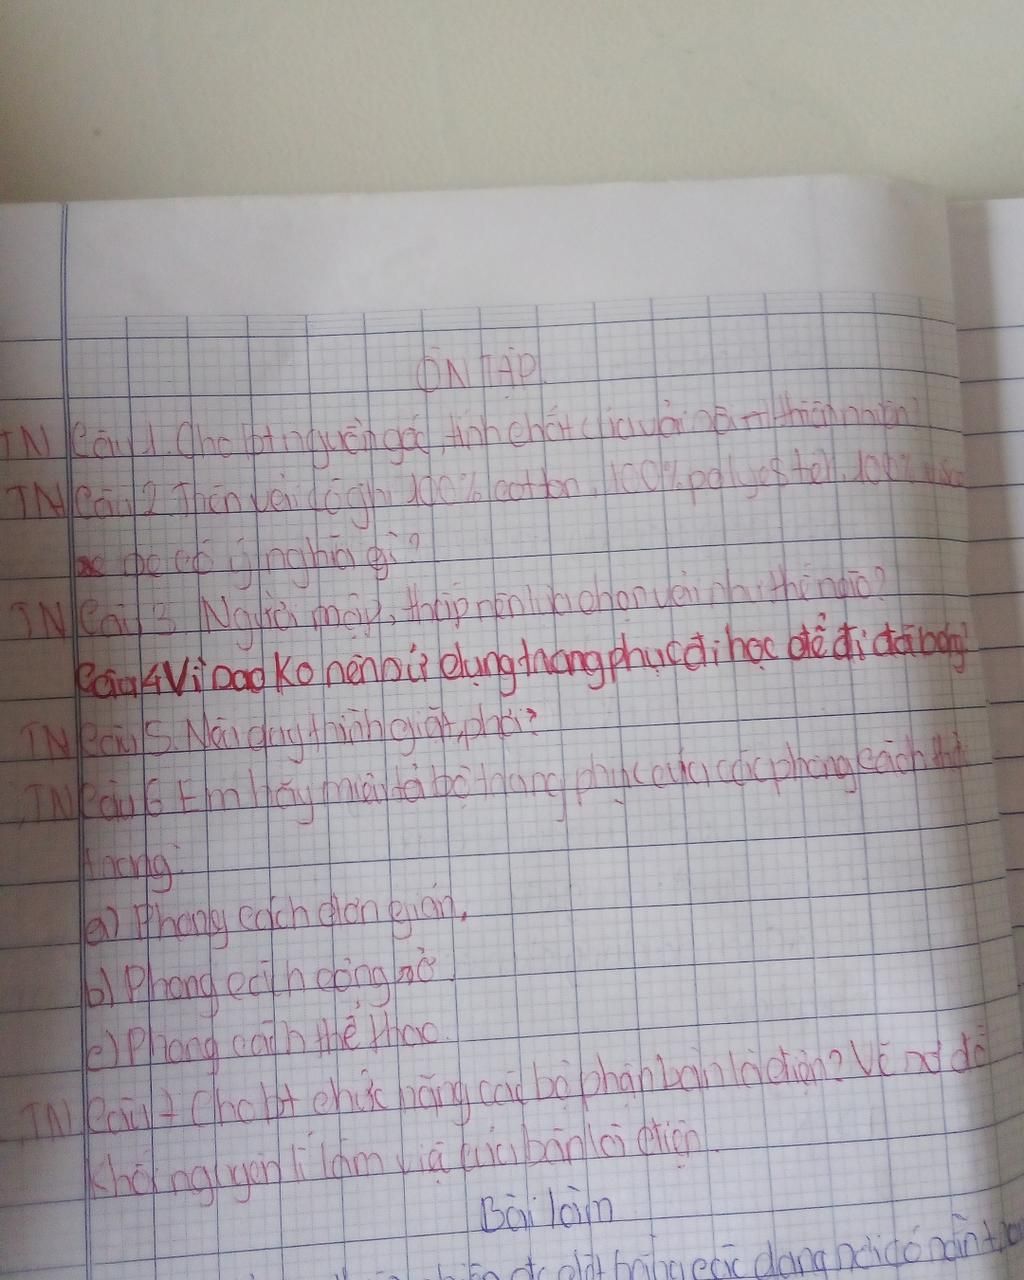 ÔN TẬP
TN Câu 1. Cho biết nguồn gốc, tính chất của vải sợi thiên nhiên?
TN Câu 2 Trên vải có ghi 100% cotton, 100% polyester, 100%
có ý nghĩa gì?
TN Câu 3 Người mập, thấp nên lựa chọn vải như thế nào?
Câu 4 Vì sao ko nên sử dụng trang phục đi học để đi đá bóng?
TN Câu 5. Nêu quy trình giặt, phơi?
TN Câu 6 Em hãy miêu tả bộ trang phục của các phong cách thời
trang:
a) Phong cách đơn giản.
b) Phong cách công sở
c) Phong cách thể thao.
TN Câu 7 Cho bt chức năng các bộ phận bàn là điện? Vẽ sơ đồ
khối nguyên lí làm việc của bàn là điện.
Bài làm
các dạng